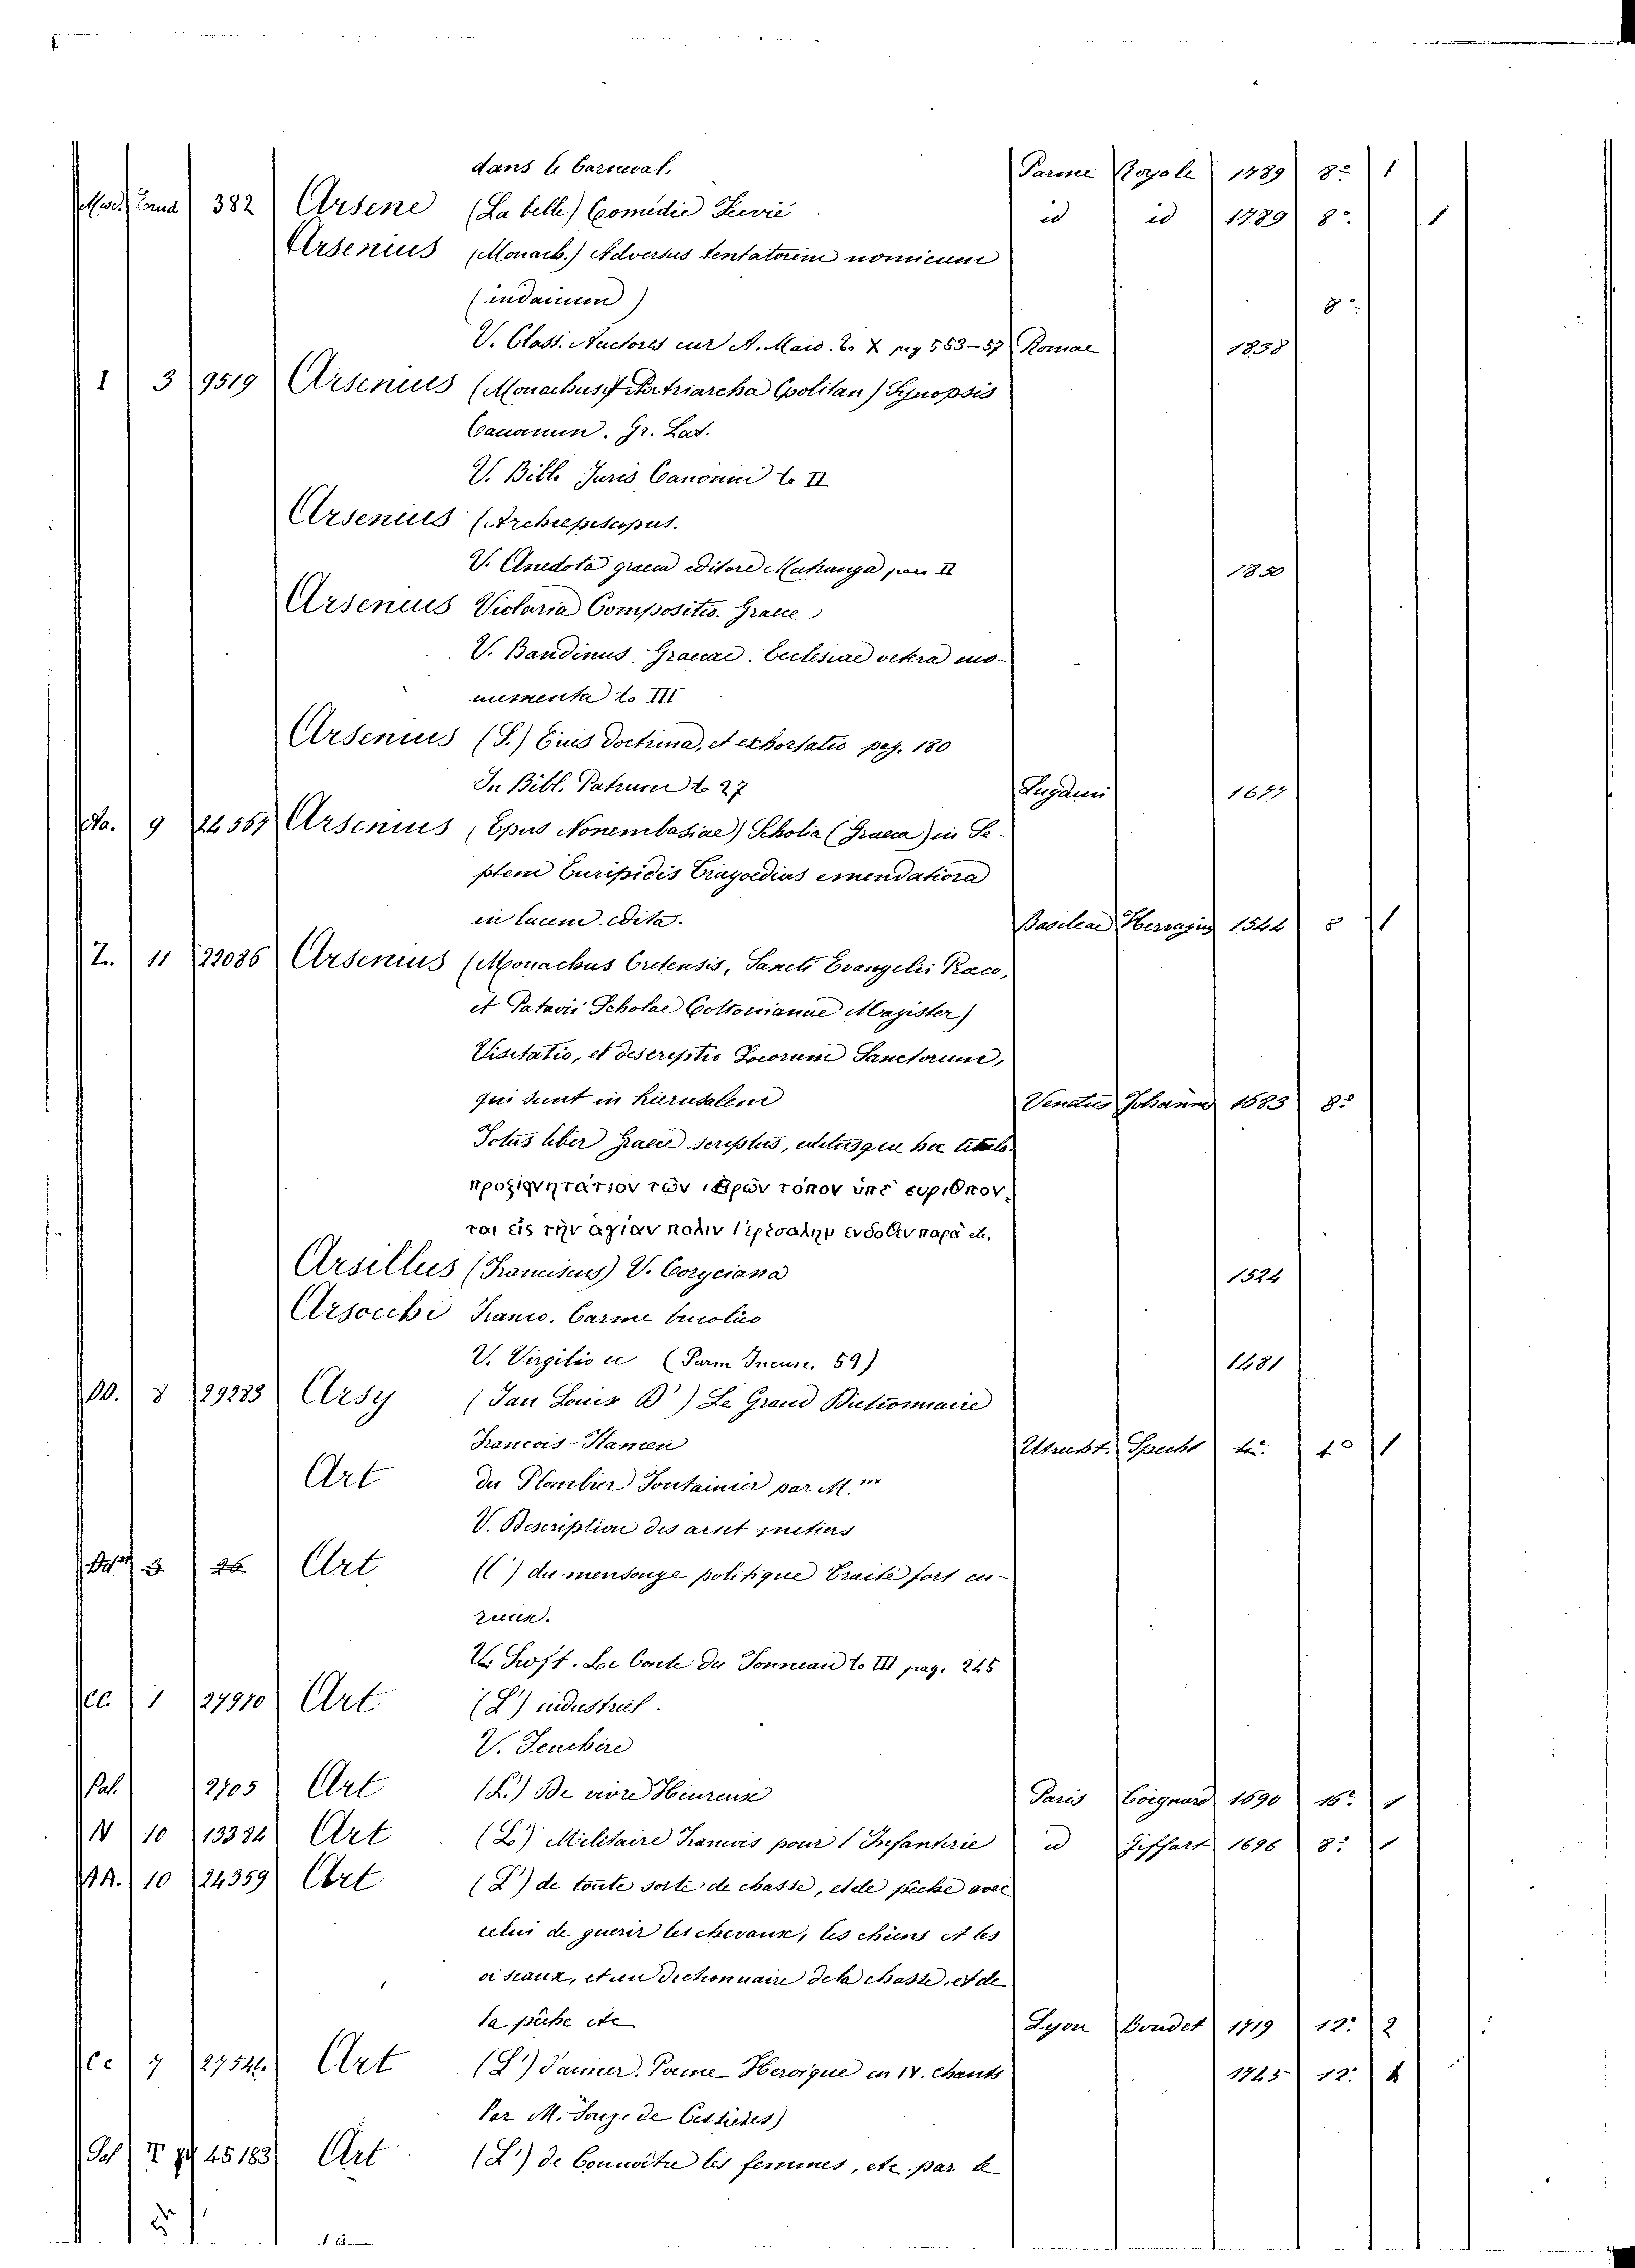 dans le Carneval. Parme Royale 1789 8º 1
382 Arsene (La belle) Comédie Feerié id id 1789 8º 1
Arsenius (Monach.) Adversus tentatorem nomicum
(indaicum) 8º
V. Class. Auctores cur A. Maio. to X pag 553-57 Romae 1838
I 3 9519 Arsenius (Monachus et Patriarcha Cpolitan) Synopsis
Canonum. Gr. Lat.
V. Bibl. Juris Canonici to II
Arsenius (Archiepiscopus.
V. Anedota graeca editore Matranga pars II 1850
Arsenius Violaria Compositio. Graece
V. Bandinus. Graecae. Ecclesiae vetera mo-
numenta to III
Arsenius (S.) Eius doctrina, et exhortatio pag. 180
In Bibl. Patrum to 27 Lugduni 1677
9 24567 Arsenius (Epus Monembasiae) Scholia (Graeca) in Se-
ptem Euripidis Tragoedias emendatiora
in lucem edita. Basileae Hervagius 1544 8 1
Z. 11 22086 Arsenius (Monachus Cretensis, Sancti Evangelii Praeco,
et Patavii Scholae Cottonianae Magister)
Visitatio, et descriptio Locorum Sanctorum,
qui sunt in hierusalem Venetiis Johannes 1683 8º
Totus liber Graece scriptus, editusque hoc titulo.
προσκυνητάριον τῶν ιερῶν τόπον ὑπὲ ευρισκον-
ται εἰς τὴν αγίαν πολιν Ιερεσαλημ ενδοθεν παρὰ etc.
Arsillus (Franciscus) V. Coryciana 1524
Arsocchi Franco. Carme bucolico
V. Virgilio ec (Parm Incun. 59) 1481
8 29283 Arsy (Jan Louis D') Le Grand Dictionnaire
Francois-Flamen Utrecht. Specht 4º 1
Art du Plombier Fontainier par M.rr
V. Description des arts et metiers
3 26 Art (l') du mensonge politique Traité fort cu-
rieux.
V. Swoft. Le Conte du Tonneau to III pag. 245
CC. 1 27970 Art (L') industriel.
V. Feuchère
Pal. 2705 Art (L') De vivre Heureuse Paris Coignard 1690 16º 1
N 10 13384 Art (L') Militaire Francois pour l'Infanterie id Giffart 1696 8º 1
AA. 10 24359 Art (L') de toute sorte de chasse, et de pêche avec
celui de guerir les chevaux, les chiens et les
oiseaux, et un dictionnaire de la chasse, et de
la pêche etc Lyon Boudet 1719 12º 2
Cc 7 27546 Art (L') d'aimer. Poeme Heroique en IV. Chants 1745 12º 1
Par M. Gouge de Cessieres)
Pal 45183 Art (L') de Connoitre les femmes, etc par le